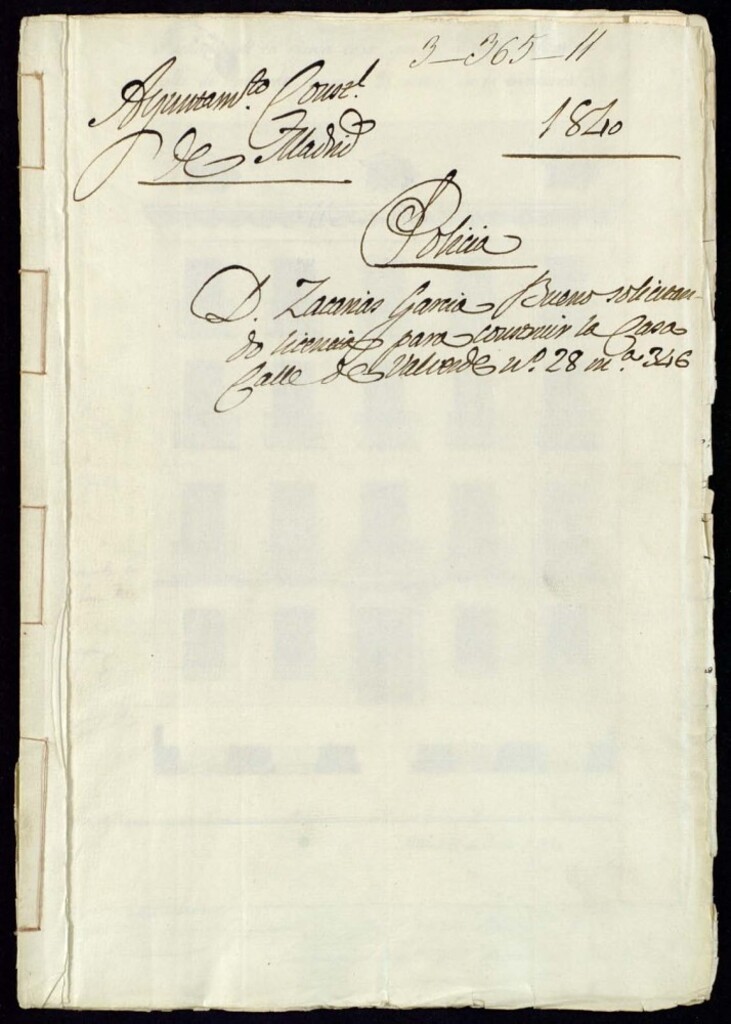 3-365-11
Ayuntamto. Constl.
de Madrid
1840
Policia
D. Zacarias Garcia Bueno solicitan-
do licencia para construir la Casa
Calle de Valverde no. 28 ma. 346